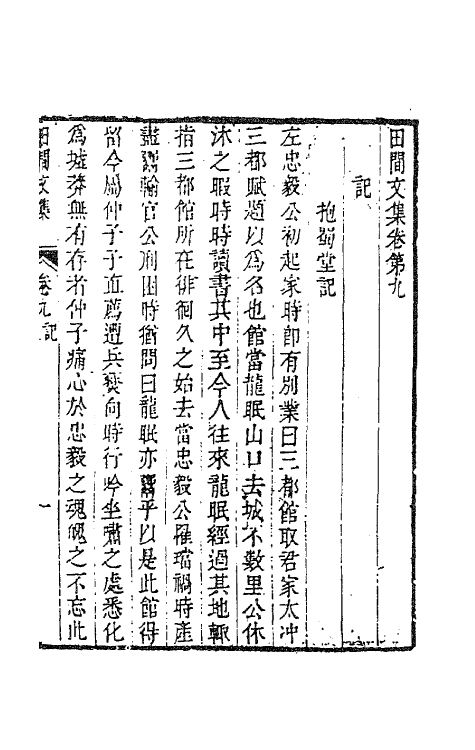 田間文集卷第九
記
抱蜀堂記
左忠毅公初起家時卽有別業曰三都館取君家太冲
三都賦題以爲名也館當龍眠山口去城不數里公休
沐之暇時時讀書其中至今人往來龍眠經過其地輒
指三都館所在徘徊久之始去當忠毅公罹璫禍時產
盡鬻輸官公刑困時猶問曰龍眠亦鬻乎以是此館得
留今屬仲子子直薦遭兵燹向時行吟坐嘯之處悉化
爲墟莽無有存者仲子痛心於忠毅之魂魄之不忘此
田間文集
卷九記
一